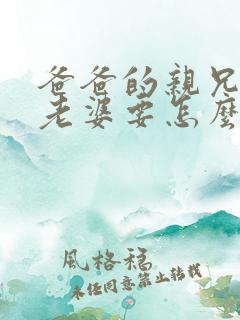 爸爸的親兄
老婆要怎麼
風格稿
未经同意禁止转载